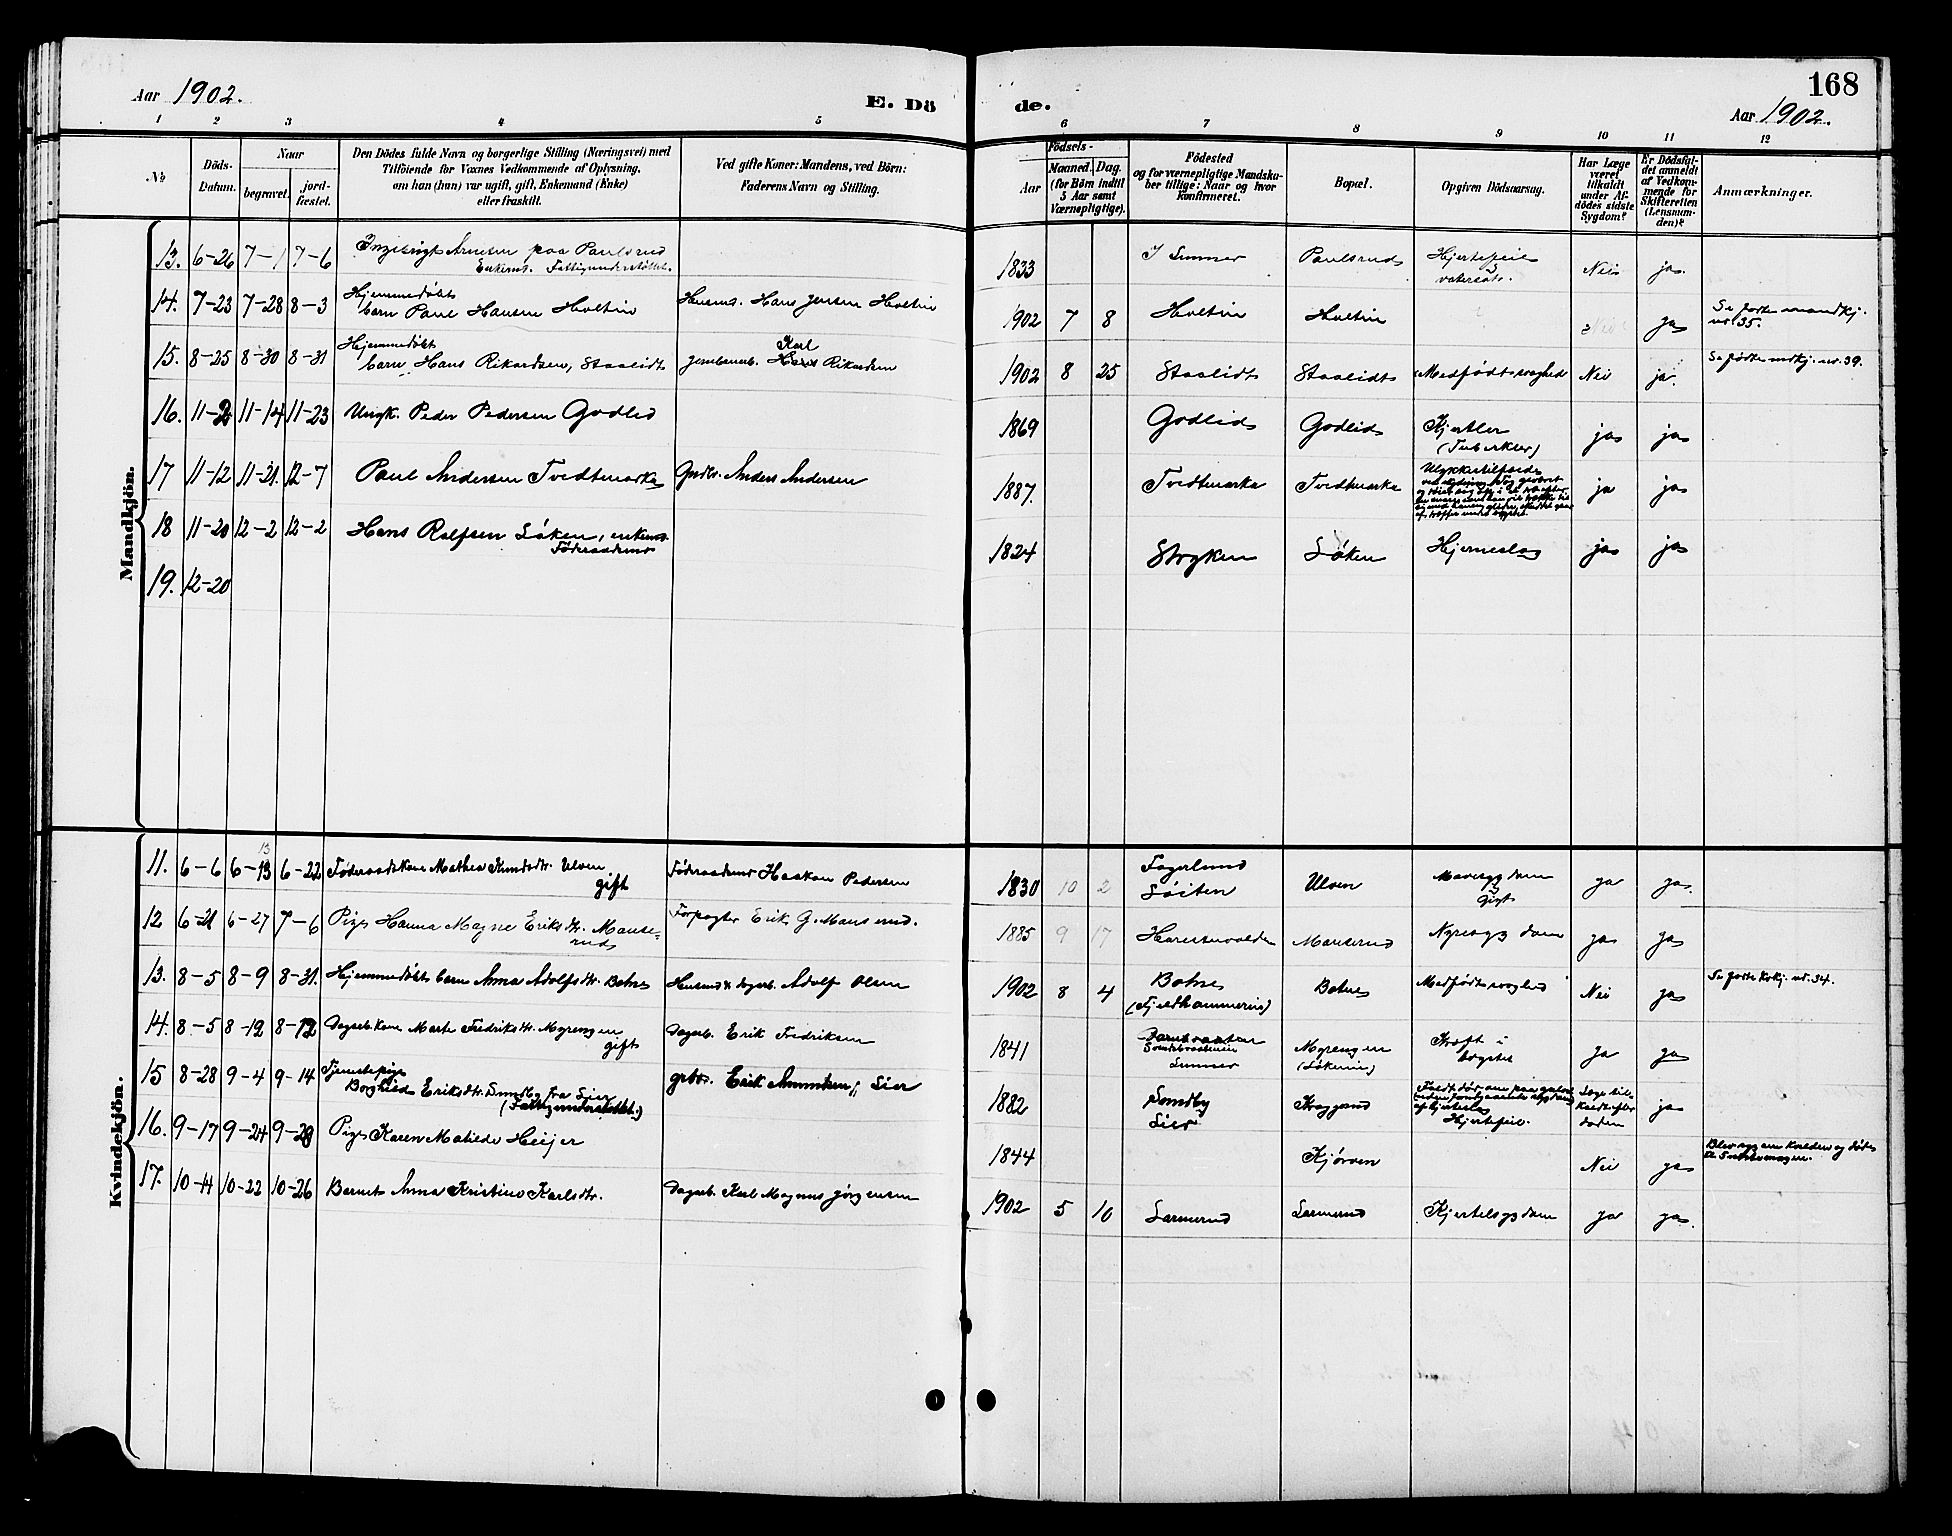 168
Aar 1902.
E. Dö
de.
Aar 1902.
1 2 3 4 5 6 7 8 9 10 11 12
No
Döds-
Datum.
Naar
begravet.
jord-
fæstet.
Den Dödes fulde Navn og borgerlige Stilling (Næringsvei) med
Tilföiende for Voxnes Vedkommende af Oplysning,
om han (hun) var ugift, gift, Enkemand (Enke)
eller fraskilt.
Ved gifte Koner: Mandens, ved Börn:
Faderens Navn og Stilling.
Födsels-
Aar
Maaned. Dag.
(for Börn indtil
5 Aar samt
Værnepligtige).
Födested
og for værnepligtige Mandska-
ber tillige: Naar og hvor
konfirmeret.
Bopæl.
Opgiven Dödsaarsag.
Har Læge
været
tilkaldt
under Af-
dödes sidste
Sygdom?
Er Dödsfal-
det anmeldt
af Vedkom-
mende for
Skifteretten
(Lensman-
den)?
Anmærkninger.
Mandkjön.
13. 6-26 7-1 7-6 Ingebrigt Arnesen paa Paulsrud
Enkemd. Fattigunderstøttet.
1833 Paulsrud Hjertefeil Nei ja.
14. 7-23 7-28 8-3 Hjemmedøbt
barn Paul Hansen Holtin Husmd. Hans Jensen Holtin
1902 7 8 Holtin Holtin Nei ja Se fødte mandkj.
nr. 35.
15. 8-25 8-30 8-31 Hjemmedøbt
barn Hans Rikardsen, Staalidt Jernbanearb. Karl Rikardsen
1902 8 25 Staalidt Staalidt Medfødt svaghed Nei ja. Se fødte mdkj. nr. 39.
16. 11-2 11-14 11-23 Ungk. Peder Pedersen Godlid
1869 Godlid Godlid Kjertler
(Tuberkler) ja ja
17 11-12 11-21. 12-7 Paul Andersen Tvedtmarka Gmdbr. Anders Andersen
1887. Tvedtmarka Tvedtmarka Ulykkestilfælde ja ja
18 11-20 12-2 12-2 Hans Rolfsen Løken, enkemd.
Føderaadsmd
1824 Stryken Løken Hjerneslag ja ja
19. 12-20
Kvindekjön.
11. 6-6 6-13 6-22 Føderaadskone Mathea Knudsdtr. Ulven
gift Føderaadsmd Haakon Pedersen
1830 10 2 Fagerlund
Løiten Ulven Mavesygdom
Gigt ja ja.
12 6-21 6-27 7-6 Pige Hanna Magne Eriksdtr. Mause-
rud Forpagter Erik G. Mauserud.
1885 9 17 Mauserud Nyresygdom ja ja
13. 8-5 8-9 8-31. Hjemmedøbt barn Anna Adolfsdtr. Bohn Husmd & dagarb. Adolf Olsen
1902 8 4 Bohn
(Fjeldhammeren) Bohn Medfødt svaghed Nei ja Se fødte kvkj. nr. 34.
14. 8-5 8-12 8-12 Dagarb.kone Marte Fredriksdtr. Myrengen
gift Dagarb. Erik Fredriksen
1841 Myrengen
(Løkenie) Kræft i
brystet ja ja
15 8-28 9-4 9-14 Tjenestepige
Borghild Eriksdtr. Sundby fra Lier
(Fattigunderstøttet.) grbr. Erik Amundsen, Lier
1882 Sundby
Lier Kraggerud Hjertefeil. Læge til-
kaldt efter
døden ja
16. 9-17 9-24 9-28 Pige Karen Matilde Heijer
1844 Kjørven Nei ja Blev syg om kvelden og døde
17. 10-14 10-22 10-26 Barnet Anna Kristine Karlsdtr. Dagarb. Karl Magnus Jørgensen
1902 5 10 Larmerud Larmerud Kjertelsygdom ja ja.